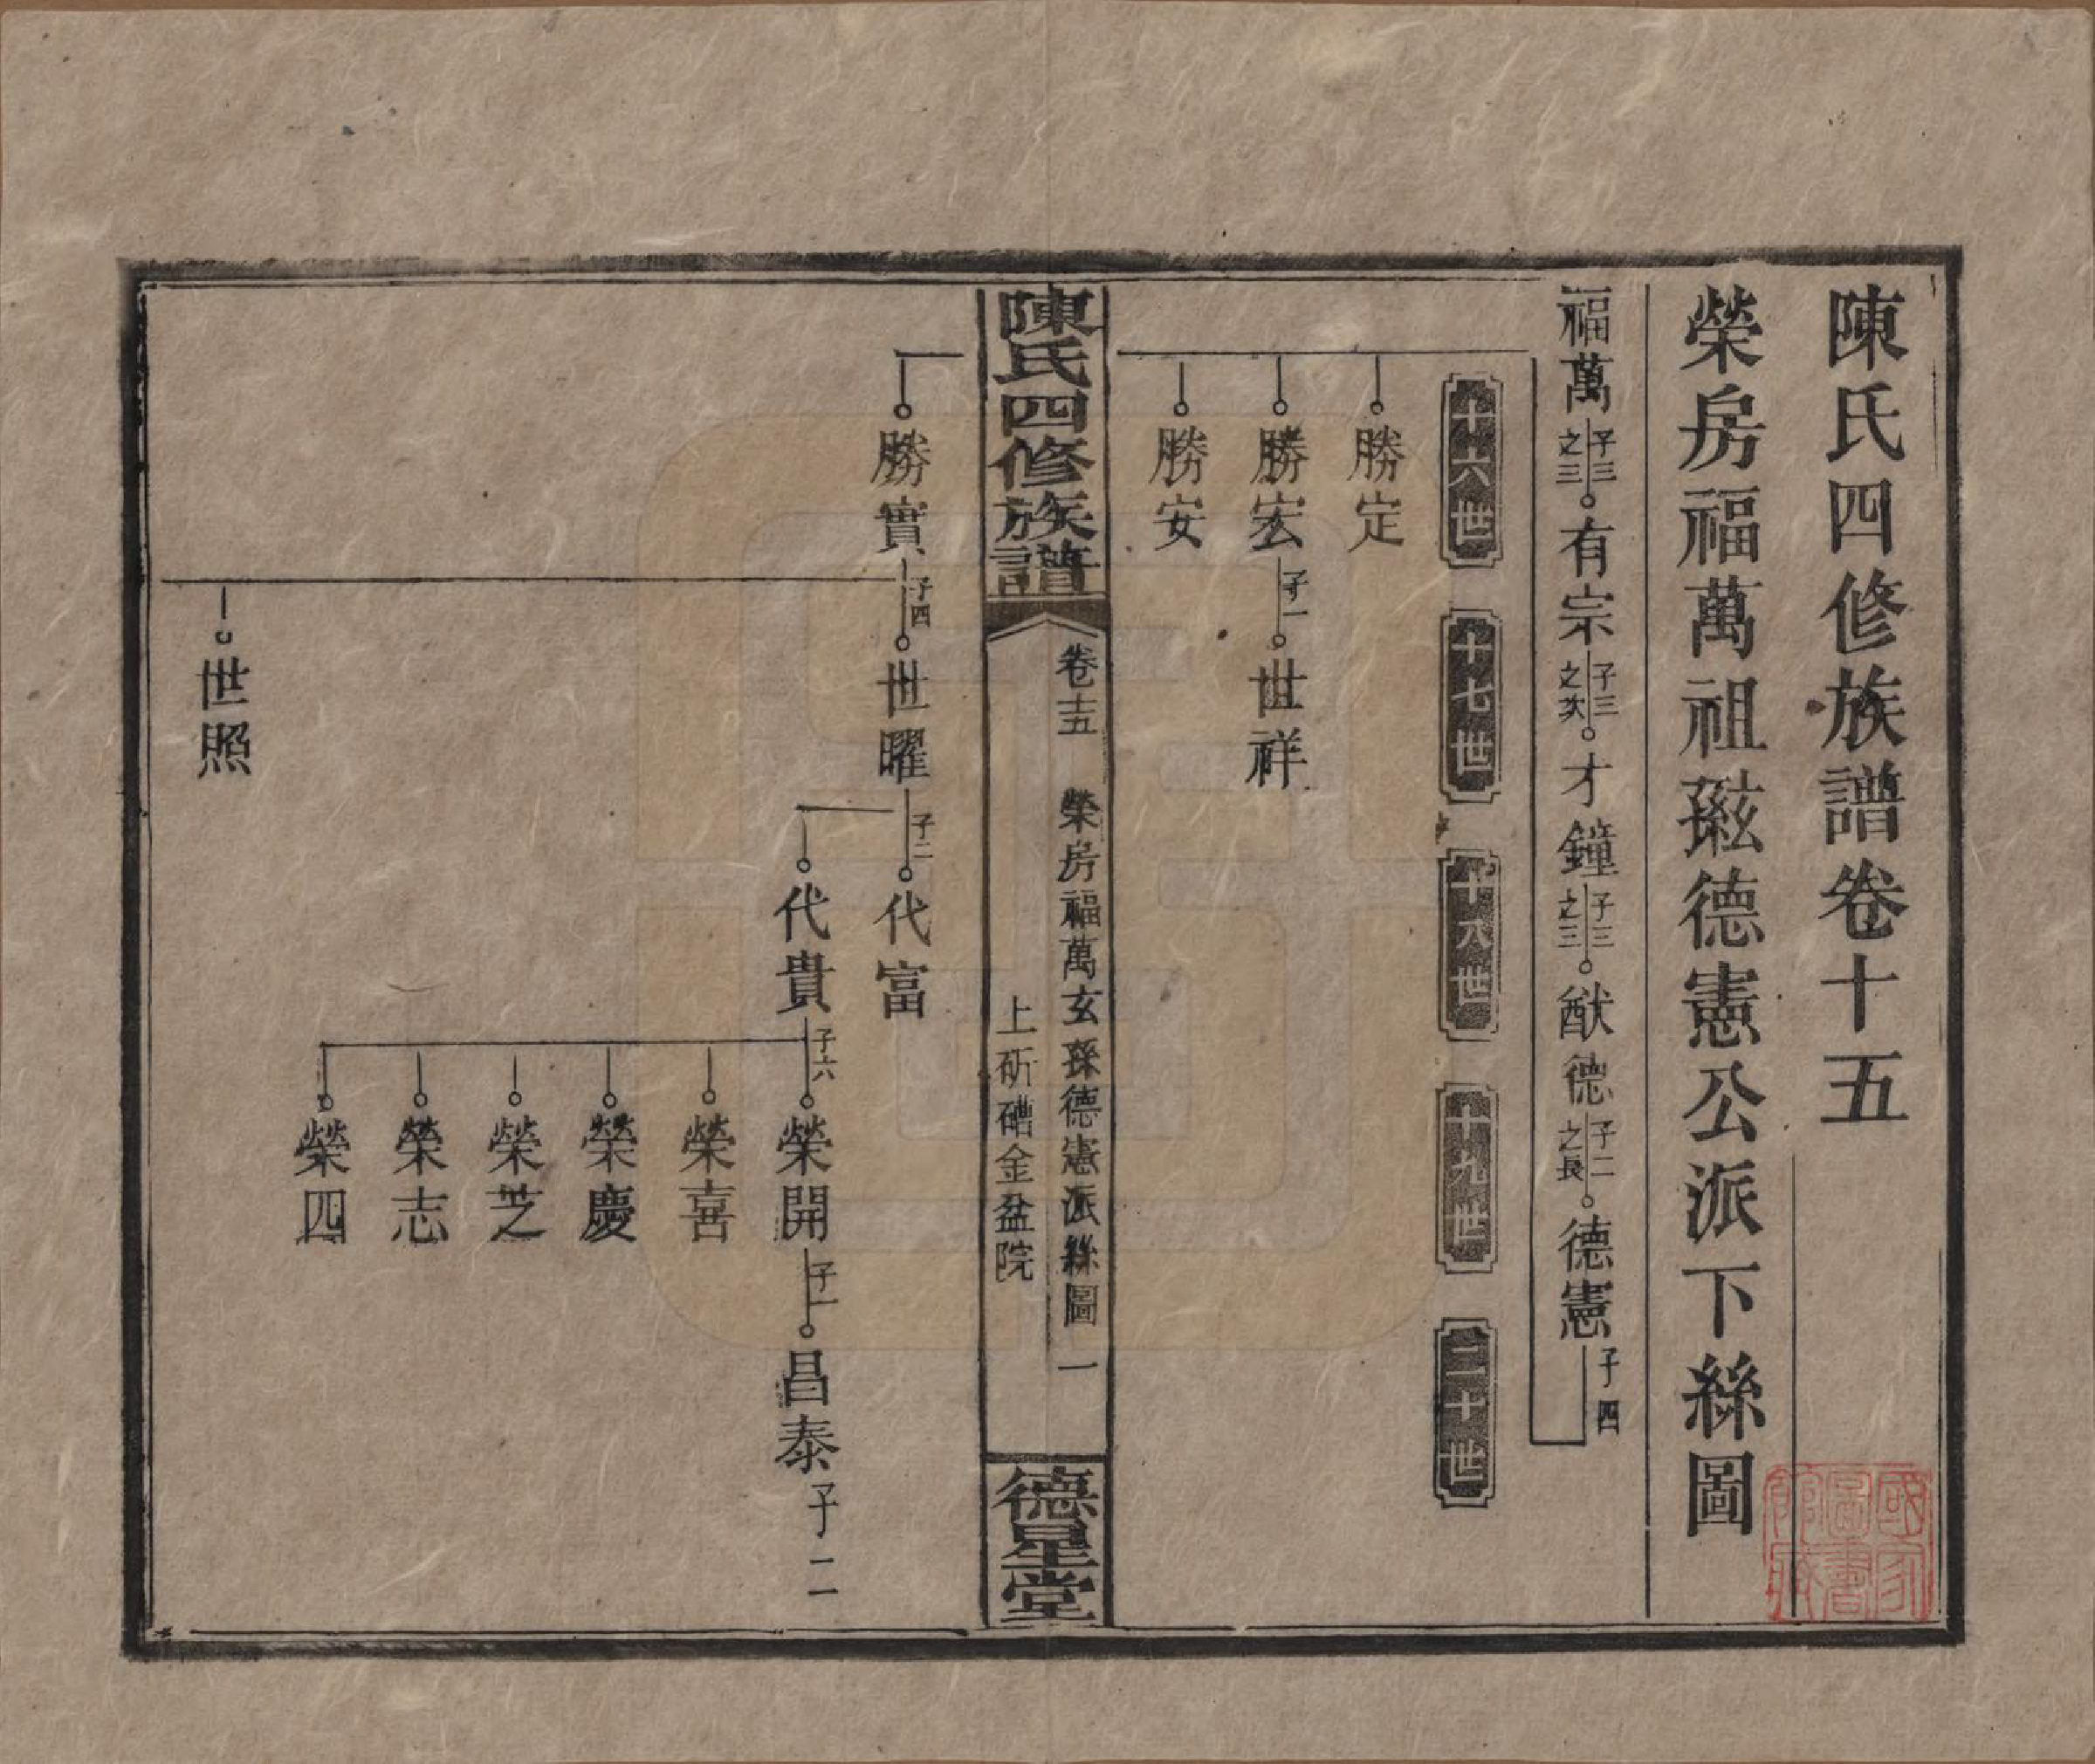 陳氏四修族譜卷十五
榮房福萬祖玆德憲公派下絲圖
福萬 子三之三 有宗 子三之次 才鐘 子三之三 猷德 子二之長 德憲 子四
十六世 十七世 十八世 十九世 二十世
勝定
勝宏 子一 世祥
勝安
陳氏四修族譜
卷十五 榮房福萬玄孫德憲派絲圖 一
上斫礄金盆院
德星堂
勝實 子四 世曜 子二 代富
代貴 子六 榮開 子一 昌泰 子二
榮喜
榮慶
榮芝
榮志
榮四
世照
國家圖書館藏